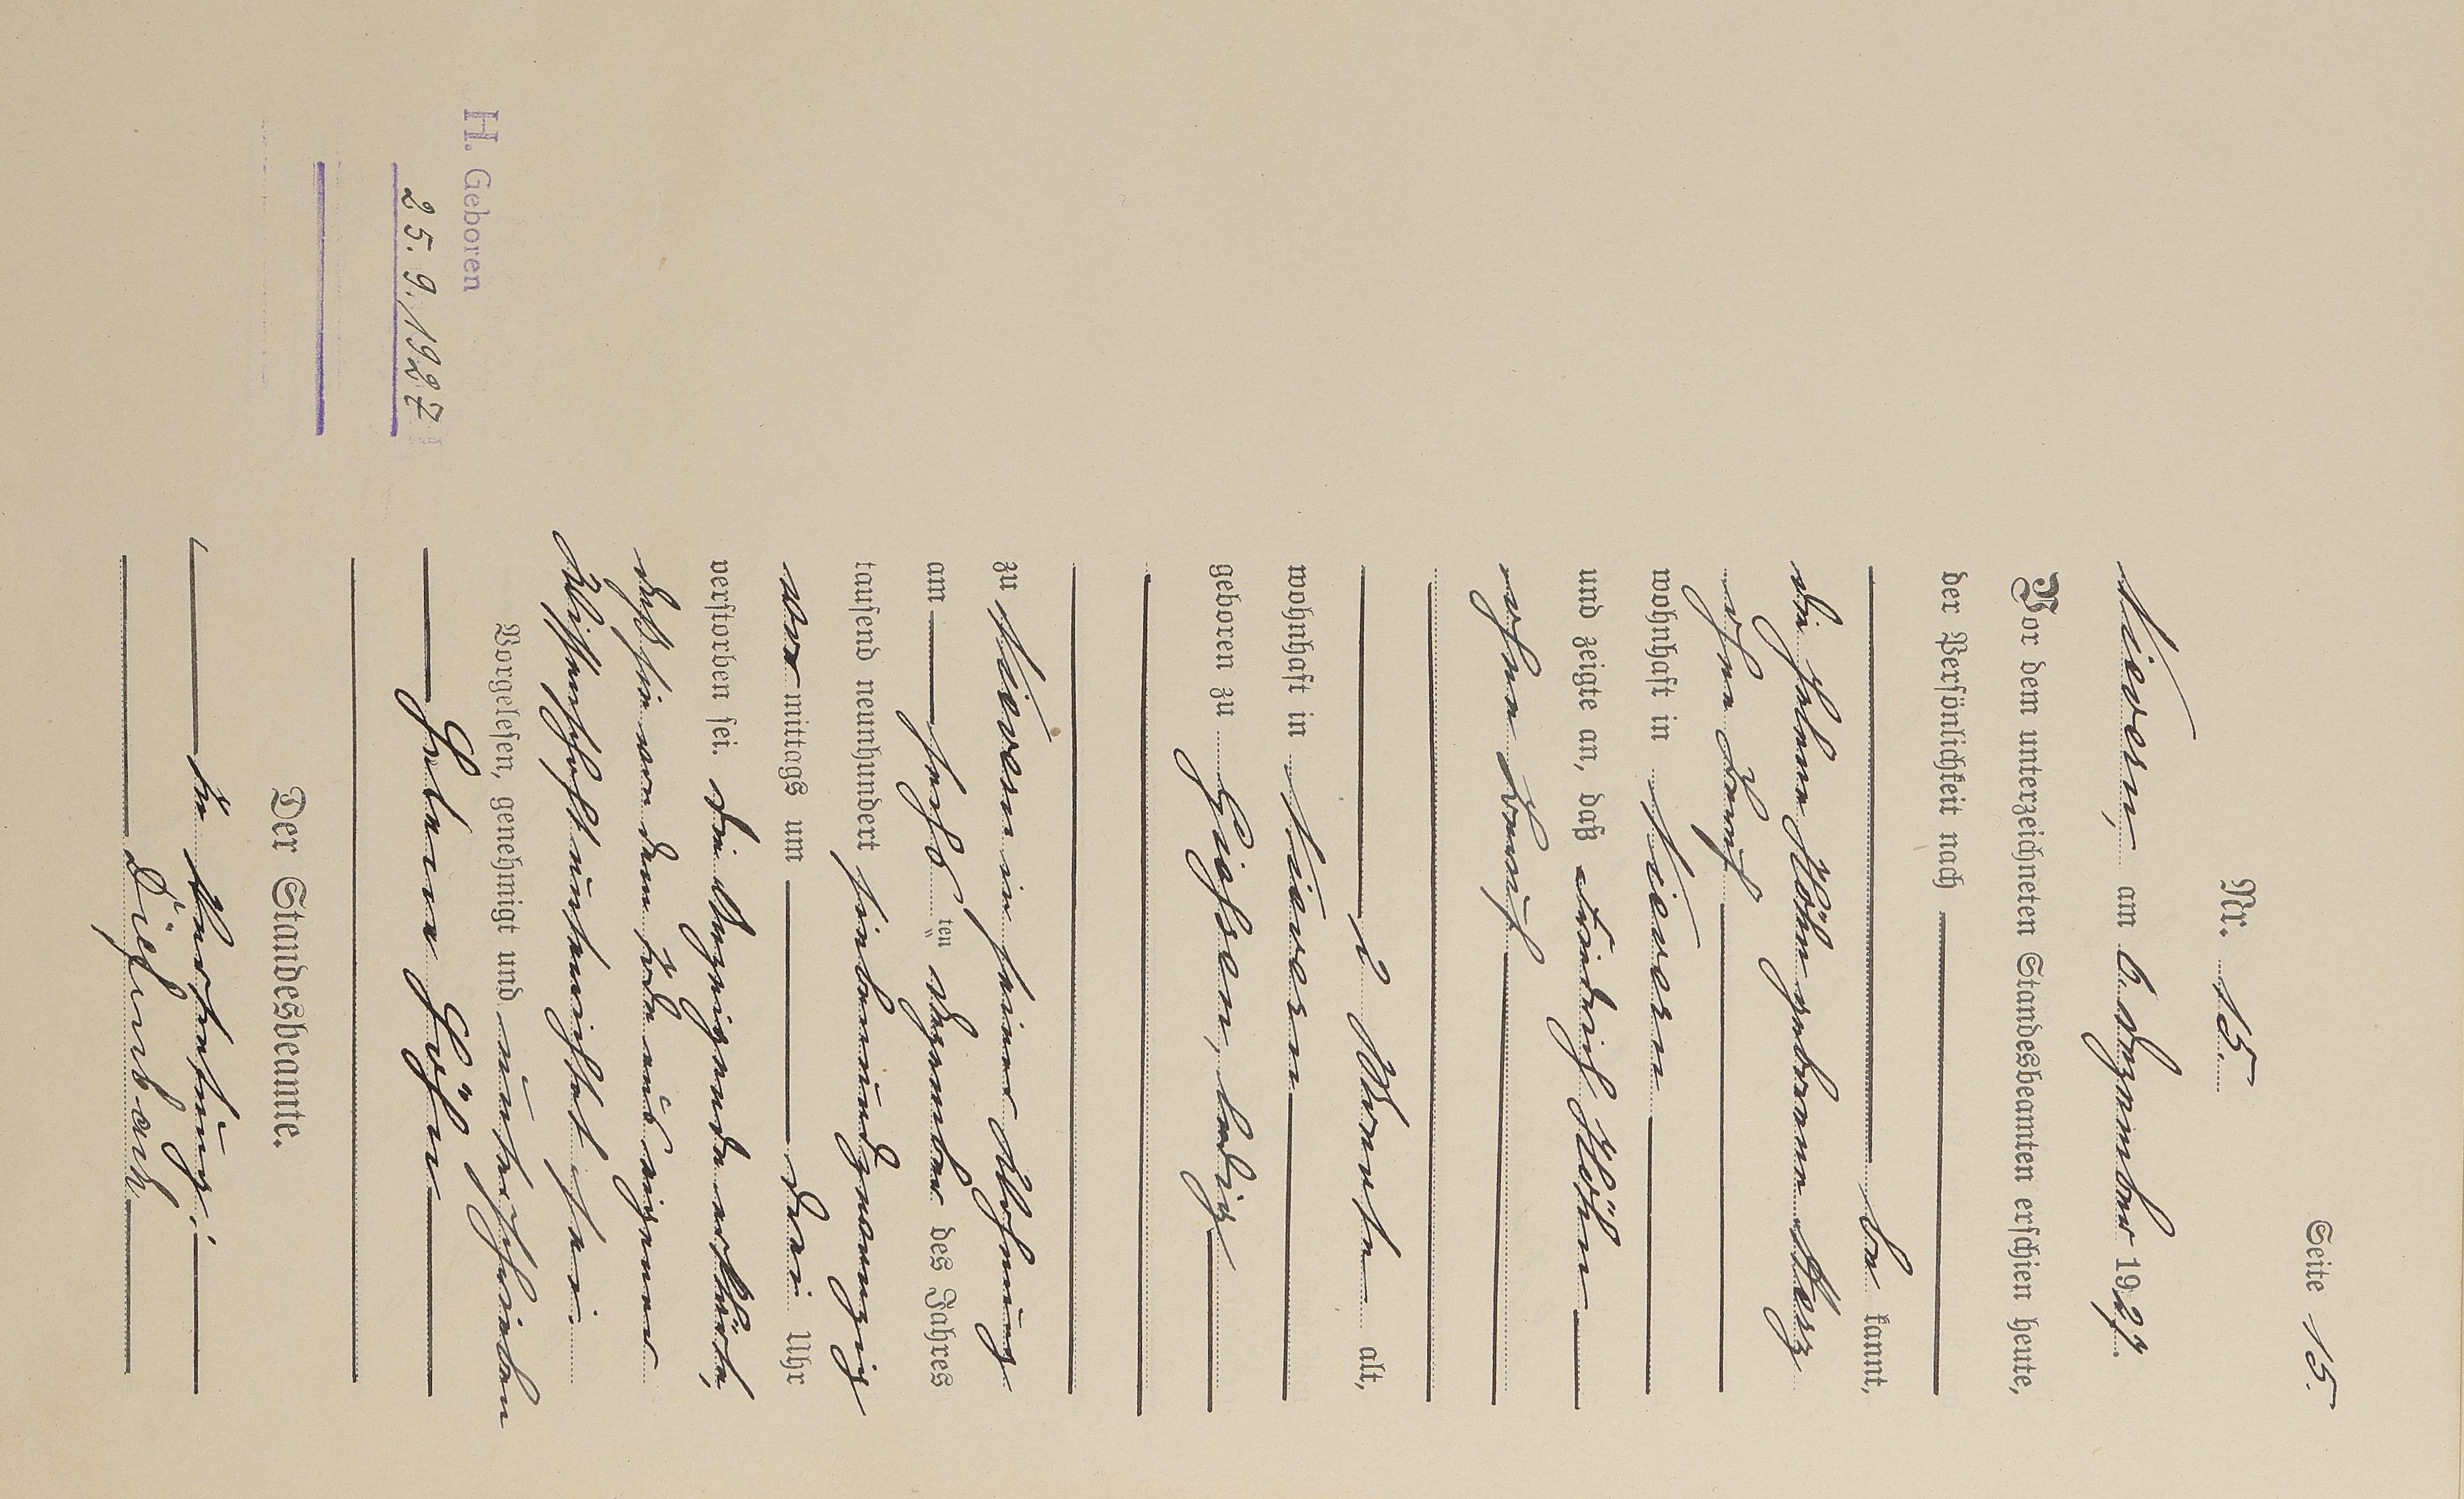 Seite 15.
Nr. 15.
Nievern, am 6. Dezember 1927.
Vor dem unterzeichneten Standesbeamten erschien heute,
der Persönlichkeit nach
be kannt,
die Helene Höhn geborene
ohne Beruf
wohnhaft in Nievern
und zeigte an, daß Friedrich Höhn
ohne Beruf
Monate alt,
wohnhaft in Nievern
geboren zu Giessen, ledig
zu Nievern in seiner Wohnung
am sechs ten Dezember des Jahres
tausend neunhundert siebenundzwanzig
vor mittags um drei Uhr
verstorben sei. Die Anzeigende erklärte,
daß sie von dem Tode aus eigener
Wissenschaft unterrichtet sei.
Vorgelesen, genehmigt und unterschrieben
Helene Höhn
Der Standesbeamte.
In Vertretung:
H. Geboren
25.9.1927